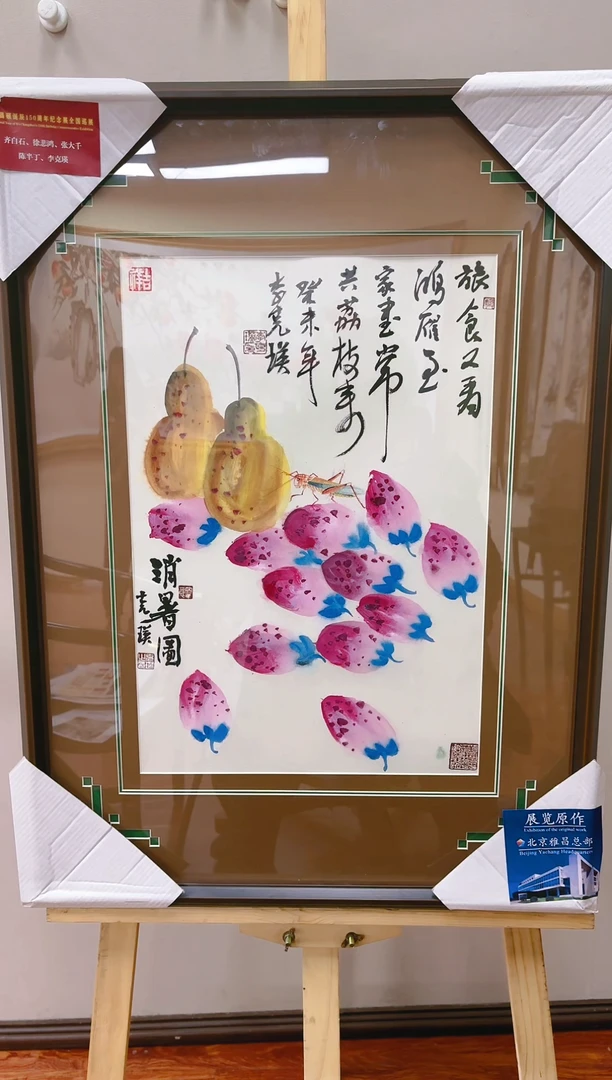 150周年纪念展全国巡展
齐白石、徐悲鸿、张大千
陈半丁、李克瑛
吉祥
旅食又看
鸿雁至
家書常
共荔枝来
癸未年
李克瑛
消暑圖
克瑛
展览原作
Exhibition of the original work
北京雅昌总部
Beijing Yachang Headquarters